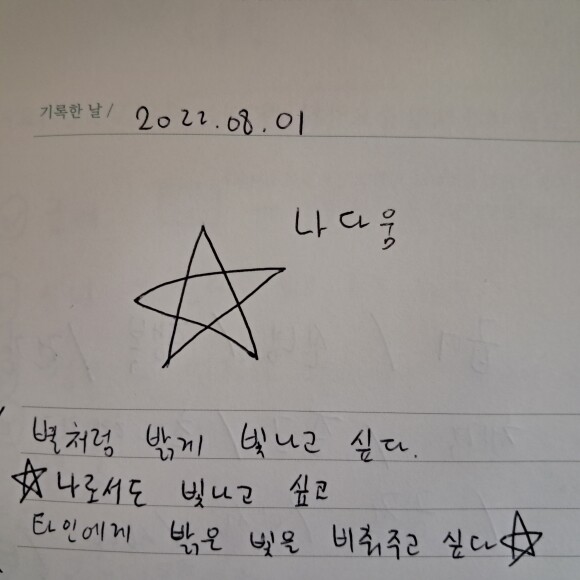 기록한 날 / 2022.08.01
나다움
별처럼 밝게 빛나고 싶다.
☆나로서도 빛나고 싶고
타인에게 밝은 빛을 비춰주고 싶다☆